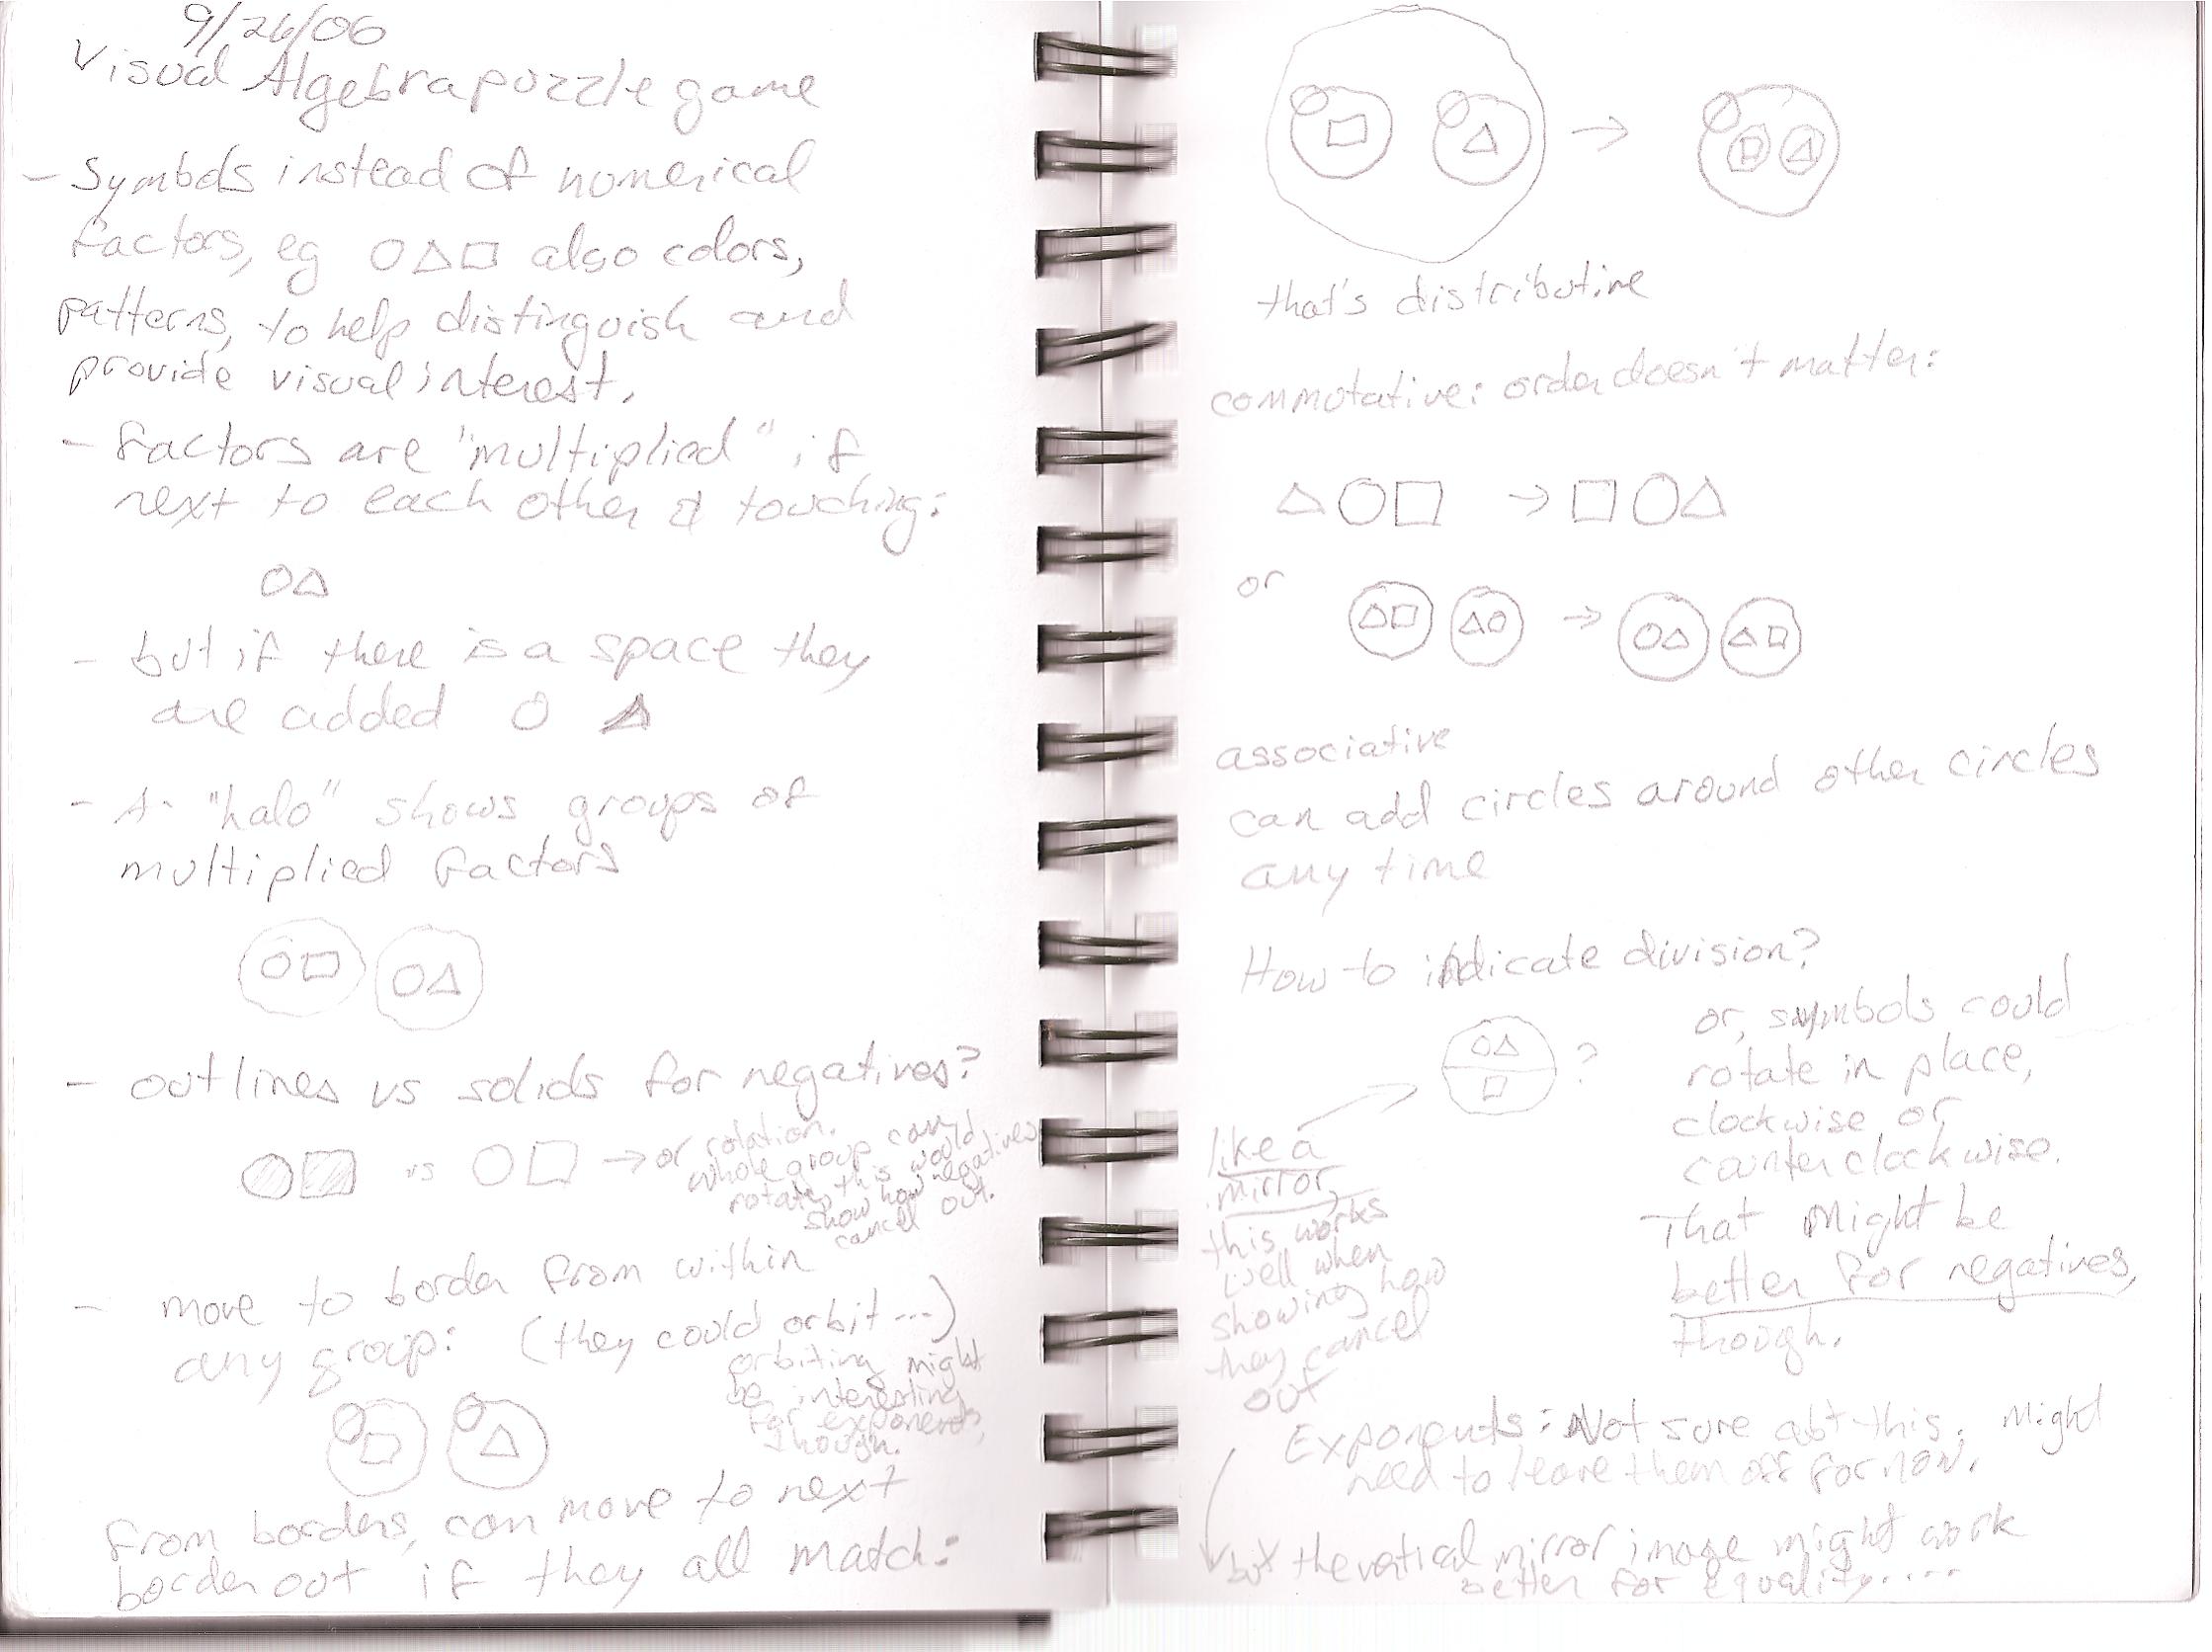 9/26/06
Visual Algebra puzzle game
- Symbols instead of numerical
factors, eg ○△□ also colors,
patterns, to help distinguish and
provide visual interest.
- factors are "multiplied" if
next to each other & touching:
○△
- but if there is a space they
are added ○ △
- A "halo" shows groups of
multiplied factors
○□ ○△
- outlines vs solids for negatives?
vs
→ or rotation.
whole group can
rotate, this would
show how negatives
cancel out.
- move to border from within
any group: (they could orbit...)
orbiting might
be interesting
for exponents,
though.
from borders, can move to next
border out if they all match:
→
that's distributive
commutative: order doesn't matter:
△○□ → □○△
or △□ △○ → ○△ △□
associative
can add circles around other circles
any time
How to indicate division?
○△
□
?
like a
mirror,
this works
well when
showing how
they cancel
out
or, symbols could
rotate in place,
clockwise or
counterclockwise.
That might be
better for negatives,
though.
Exponents: Not sure abt this. Might
need to leave them off for now.
but the vertical mirror image might work
better for equality....